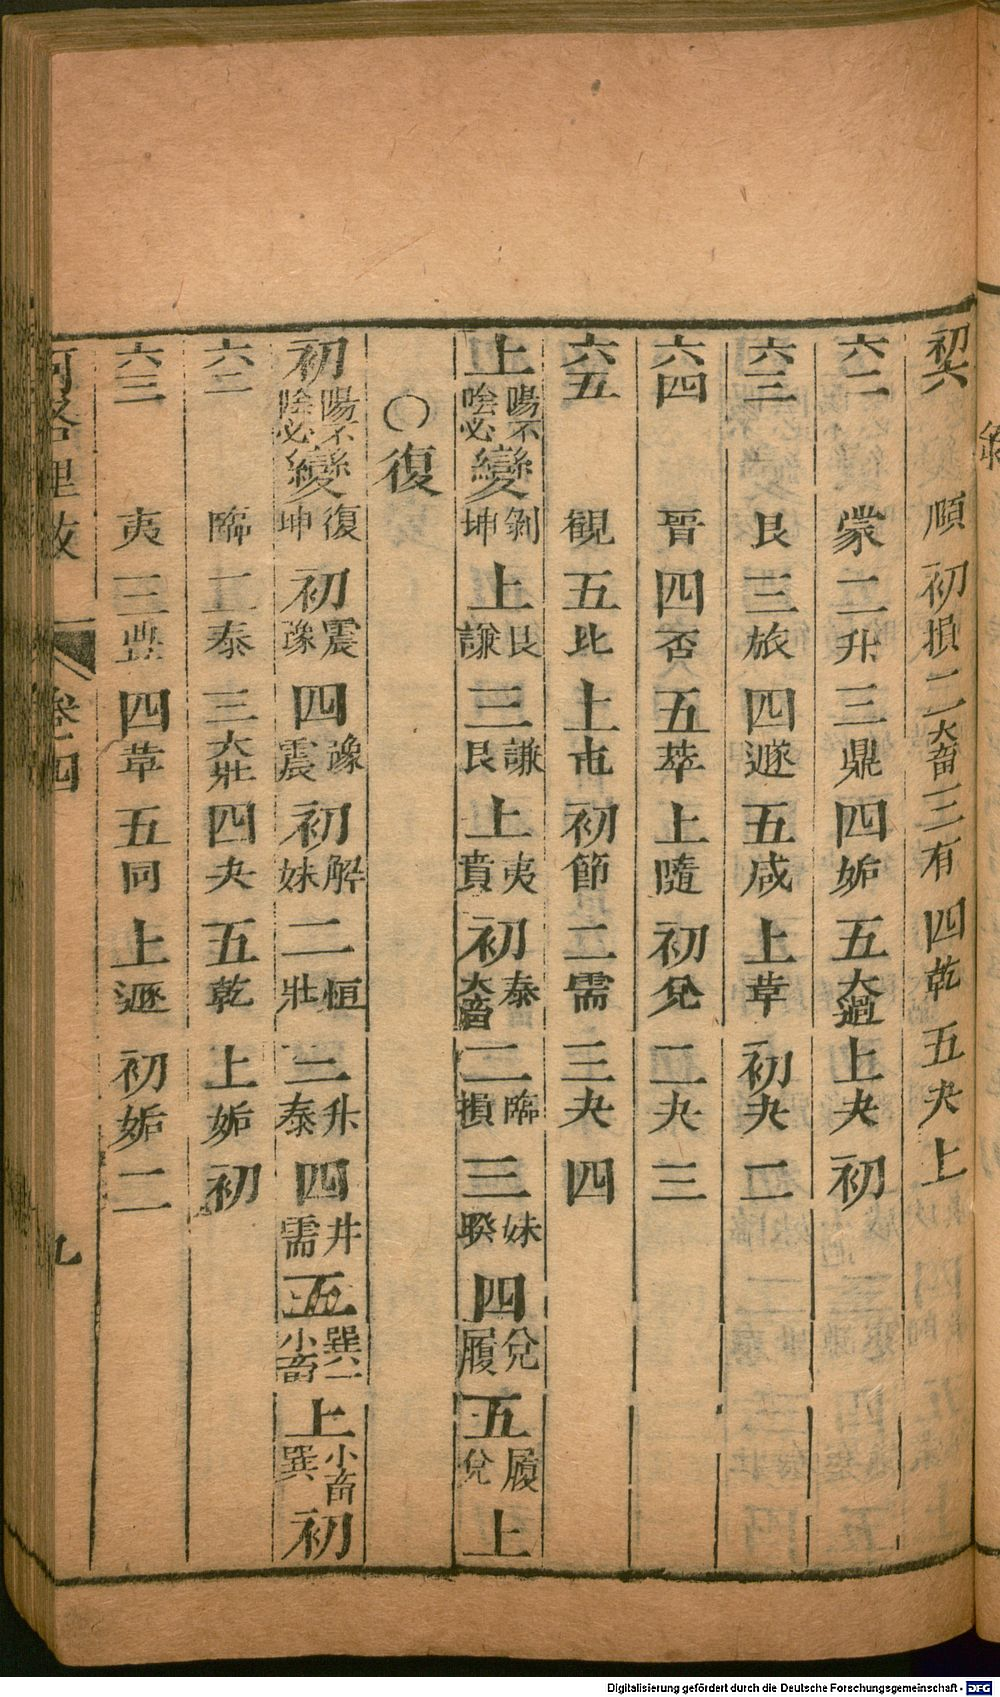 初六 頤 初 損 二 大畜 三 有 四 乾 五 夬 上
六二 蒙 二 升 三 鼎 四 姤 五 大過 上 夬 初
六三 艮 三 旅 四 遯 五 咸 上 革 初 夬 二
六四 晉 四 否 五 萃 上 隨 初 兌 二 夬 三
六五 觀 五 比 上 屯 初 節 二 需 三 夬 四
上 陽不陰必 變 剝坤 上 艮謙 三 謙艮 上 夷賁 初 泰大畜 二 臨損 三 妹睽 四 兌履 五 履兌 上
○復
初 陽不陰必 變 復坤 初 震豫 四 豫震 初 解妹 二 恒壯 三 升泰 四 井需 五 巽小畜 上 小畜巽 初
六二 臨 二 泰 三 大壯 四 夬 五 乾 上 姤 初
六三 夷 三 豐 四 革 五 同 上 遯 初 姤 二
河洛理數 卷四 九
Digitalisierung gefördert durch die Deutsche Forschungsgemeinschaft - DFG